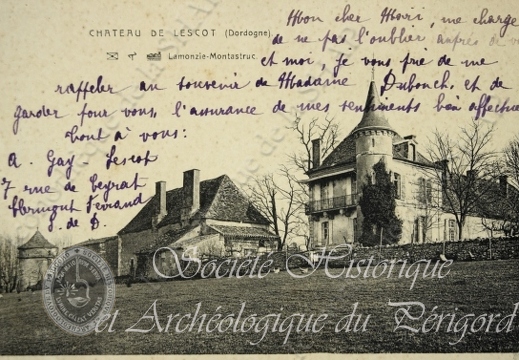 CHATEAU DE LESCOT (Dordogne)
Lamonzie-Montastruc
Mon cher Mori, me charge
de ne pas l'oublier auprès de v
et moi, je vous prie de me
rappeler au souvenir de Madame Dubouch, et de
garder pour vous, l'assurance de mes sentiments bien affectue
tout à vous:
A. Gay. Lescot
7 rue de Ceyrat
Clermont Ferrand
P. de D
Société Historique
et Archéologique du Périgord